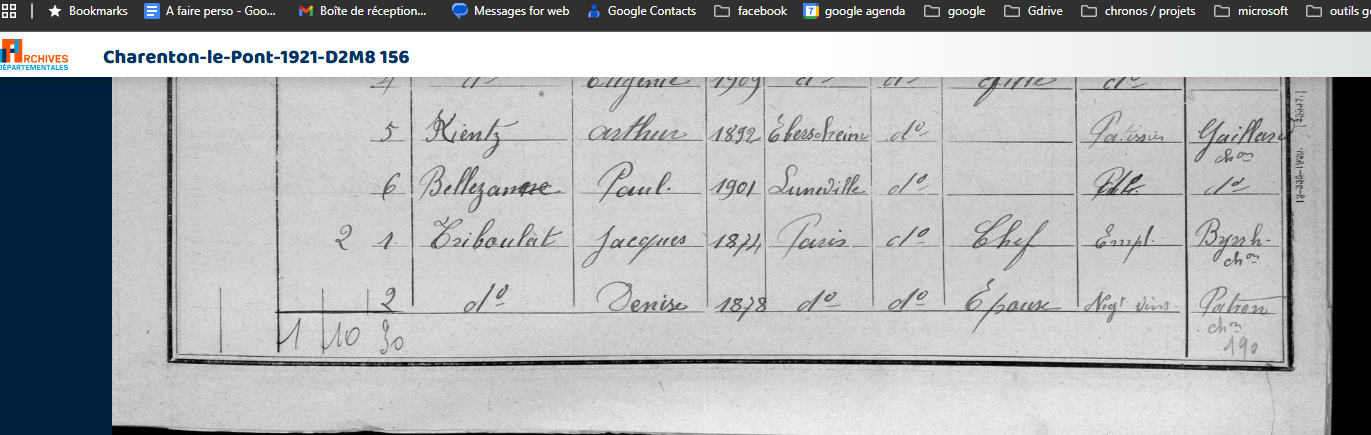 Bookmarks A faire perso - Goo... Boîte de réception... Messages for web Google Contacts facebook google agenda google Gdrive chronos / projets microsoft outils g
ARCHIVES
DÉPARTEMENTALES
Charenton-le-Pont-1921-D2M8 156
4 do Eugénie 1909 do do fille do
5 Kientz arthur 1892 Ebersheim do Patissier Gaillard
chon
6 Bellezane Paul. 1901 Luneville do do
2 1. Triboulat Jacques 1874 Paris do Chef Empl. Byrrh.
chon
2 do Denise 1878 do do Epouse Negt vins. Patron
chon
1 10 30 190